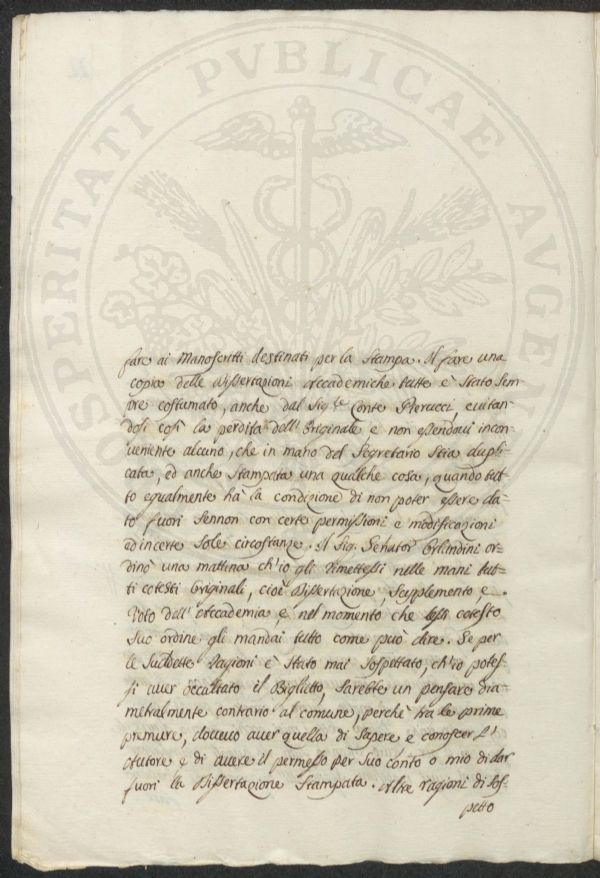 PROSPERITATI PVBLICAE AVGEN
fare ai Manoscritti destinati per la Stampa. Il fare una
copia delle Dissertazioni Accademiche tutte è Stato Sem=
pre costumato, anche dal Sig.re Conte Pierucci, evitan=
dosi così la perdita dell'Originale e non essendovi incon=
veniente alcuno, che in mano del Segretario Stia dupli=
cata, ed anche Stampata una qualche cosa, quando tut=
to egualmente hà la condizione di non poter essere da=
to fuori Sennon con certe permissioni e modificazioni
ed in certe Sole circostanze. Il Sig. Senator Orlandini or=
dinò una mattina ch'io gli rimettessi nelle mani tut=
ti cotesti Originali, cioè Dissertazione, Supplemento, e
Voto dell'Accademia e, nel momento che cotesto
Suo ordine gli mandai tutto come può dire. Se per
le Suddette ragioni è Stato mai Sospettato, ch'io potes=
si aver occultato il Biglietto, Sarebbe un pensare dia=
metralmente contrario al comune, perchè tra le prime
premure, dovevo aver quella di Sapere e conoscer L'
Autore e di avere il permesso per Suo conto o mio di dar
fuori la Dissertazione Stampata. Altre ragioni di Sos=
petto